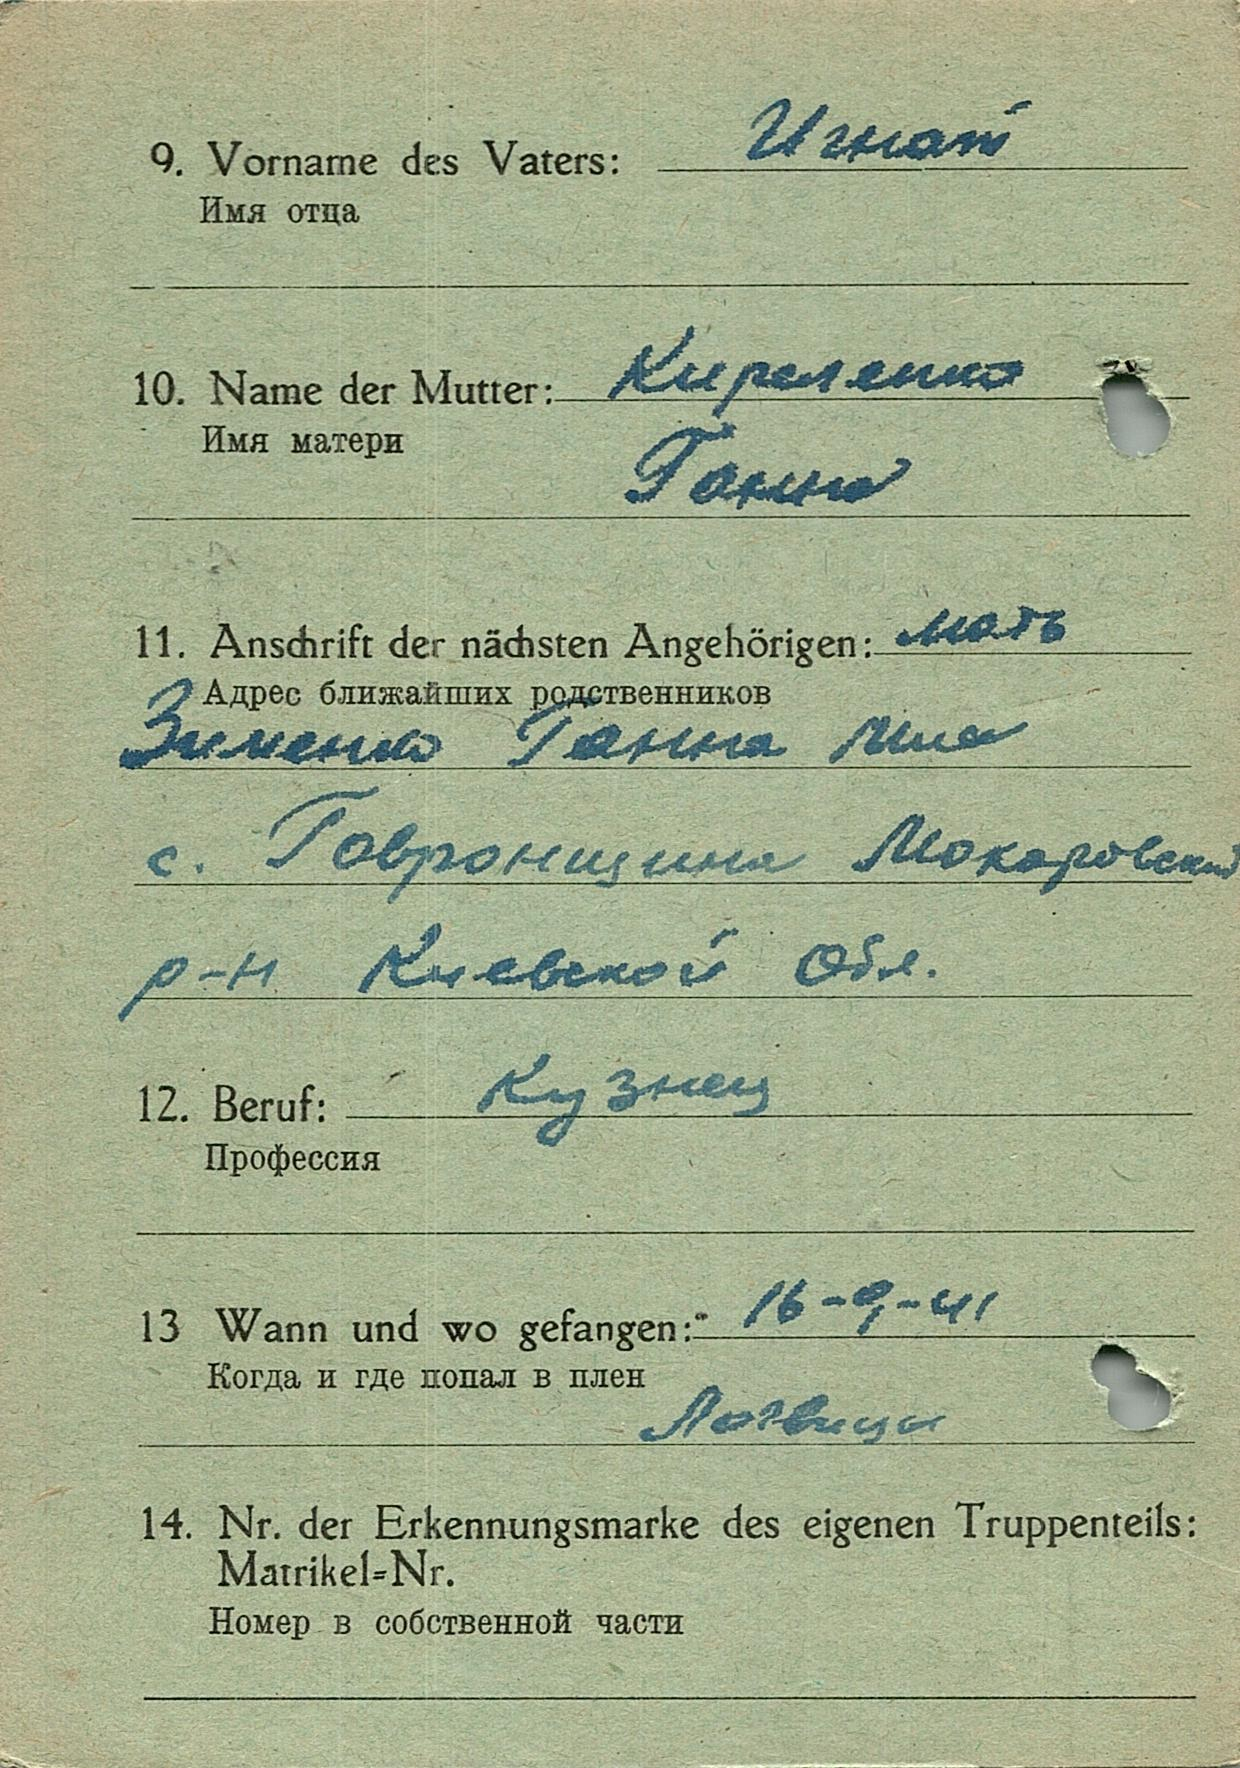 9. Vorname des Vaters: Игнат
Имя отца
10. Name der Mutter: Киреленко
Имя матери
Ганна
11. Anschrift der nächsten Angehörigen: мать
Адрес ближайших родственников
Зименко Ганна
с. Говронщина Мокаровский
р-н Киевской Обл.
12. Beruf: Кузнец
Профессия
13 Wann und wo gefangen: 16-9-41
Когда и где попал в плен
14. Nr. der Erkennungsmarke des eigenen Truppenteils:
Matrikel=Nr.
Номер в собственной части